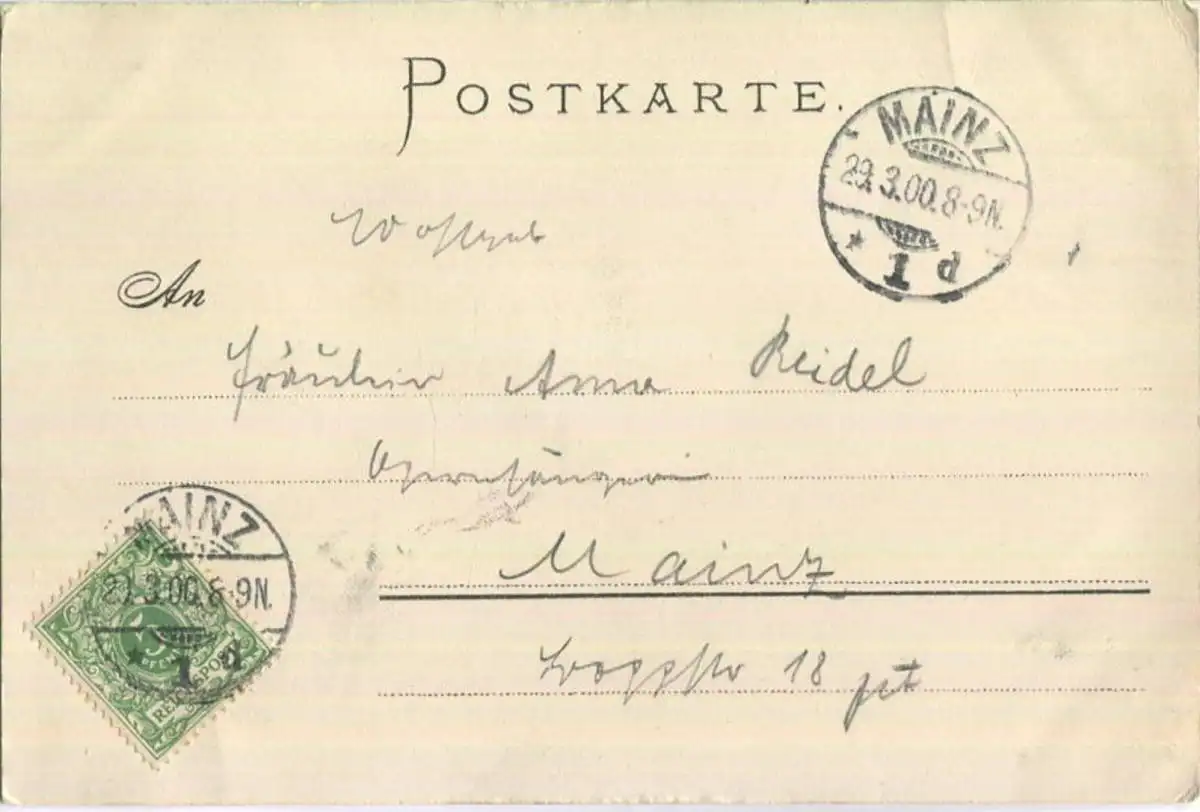 POSTKARTE.
MAINZ
29.3.00.8-9N.
* 1 d
Wohlgeb
An
Fräulein Anna Reidel
Opernsängerin
Mainz
18 pt
MAINZ
29.3.00.8-9N.
* 1 d
5
PFENNIG
REICHSPOST